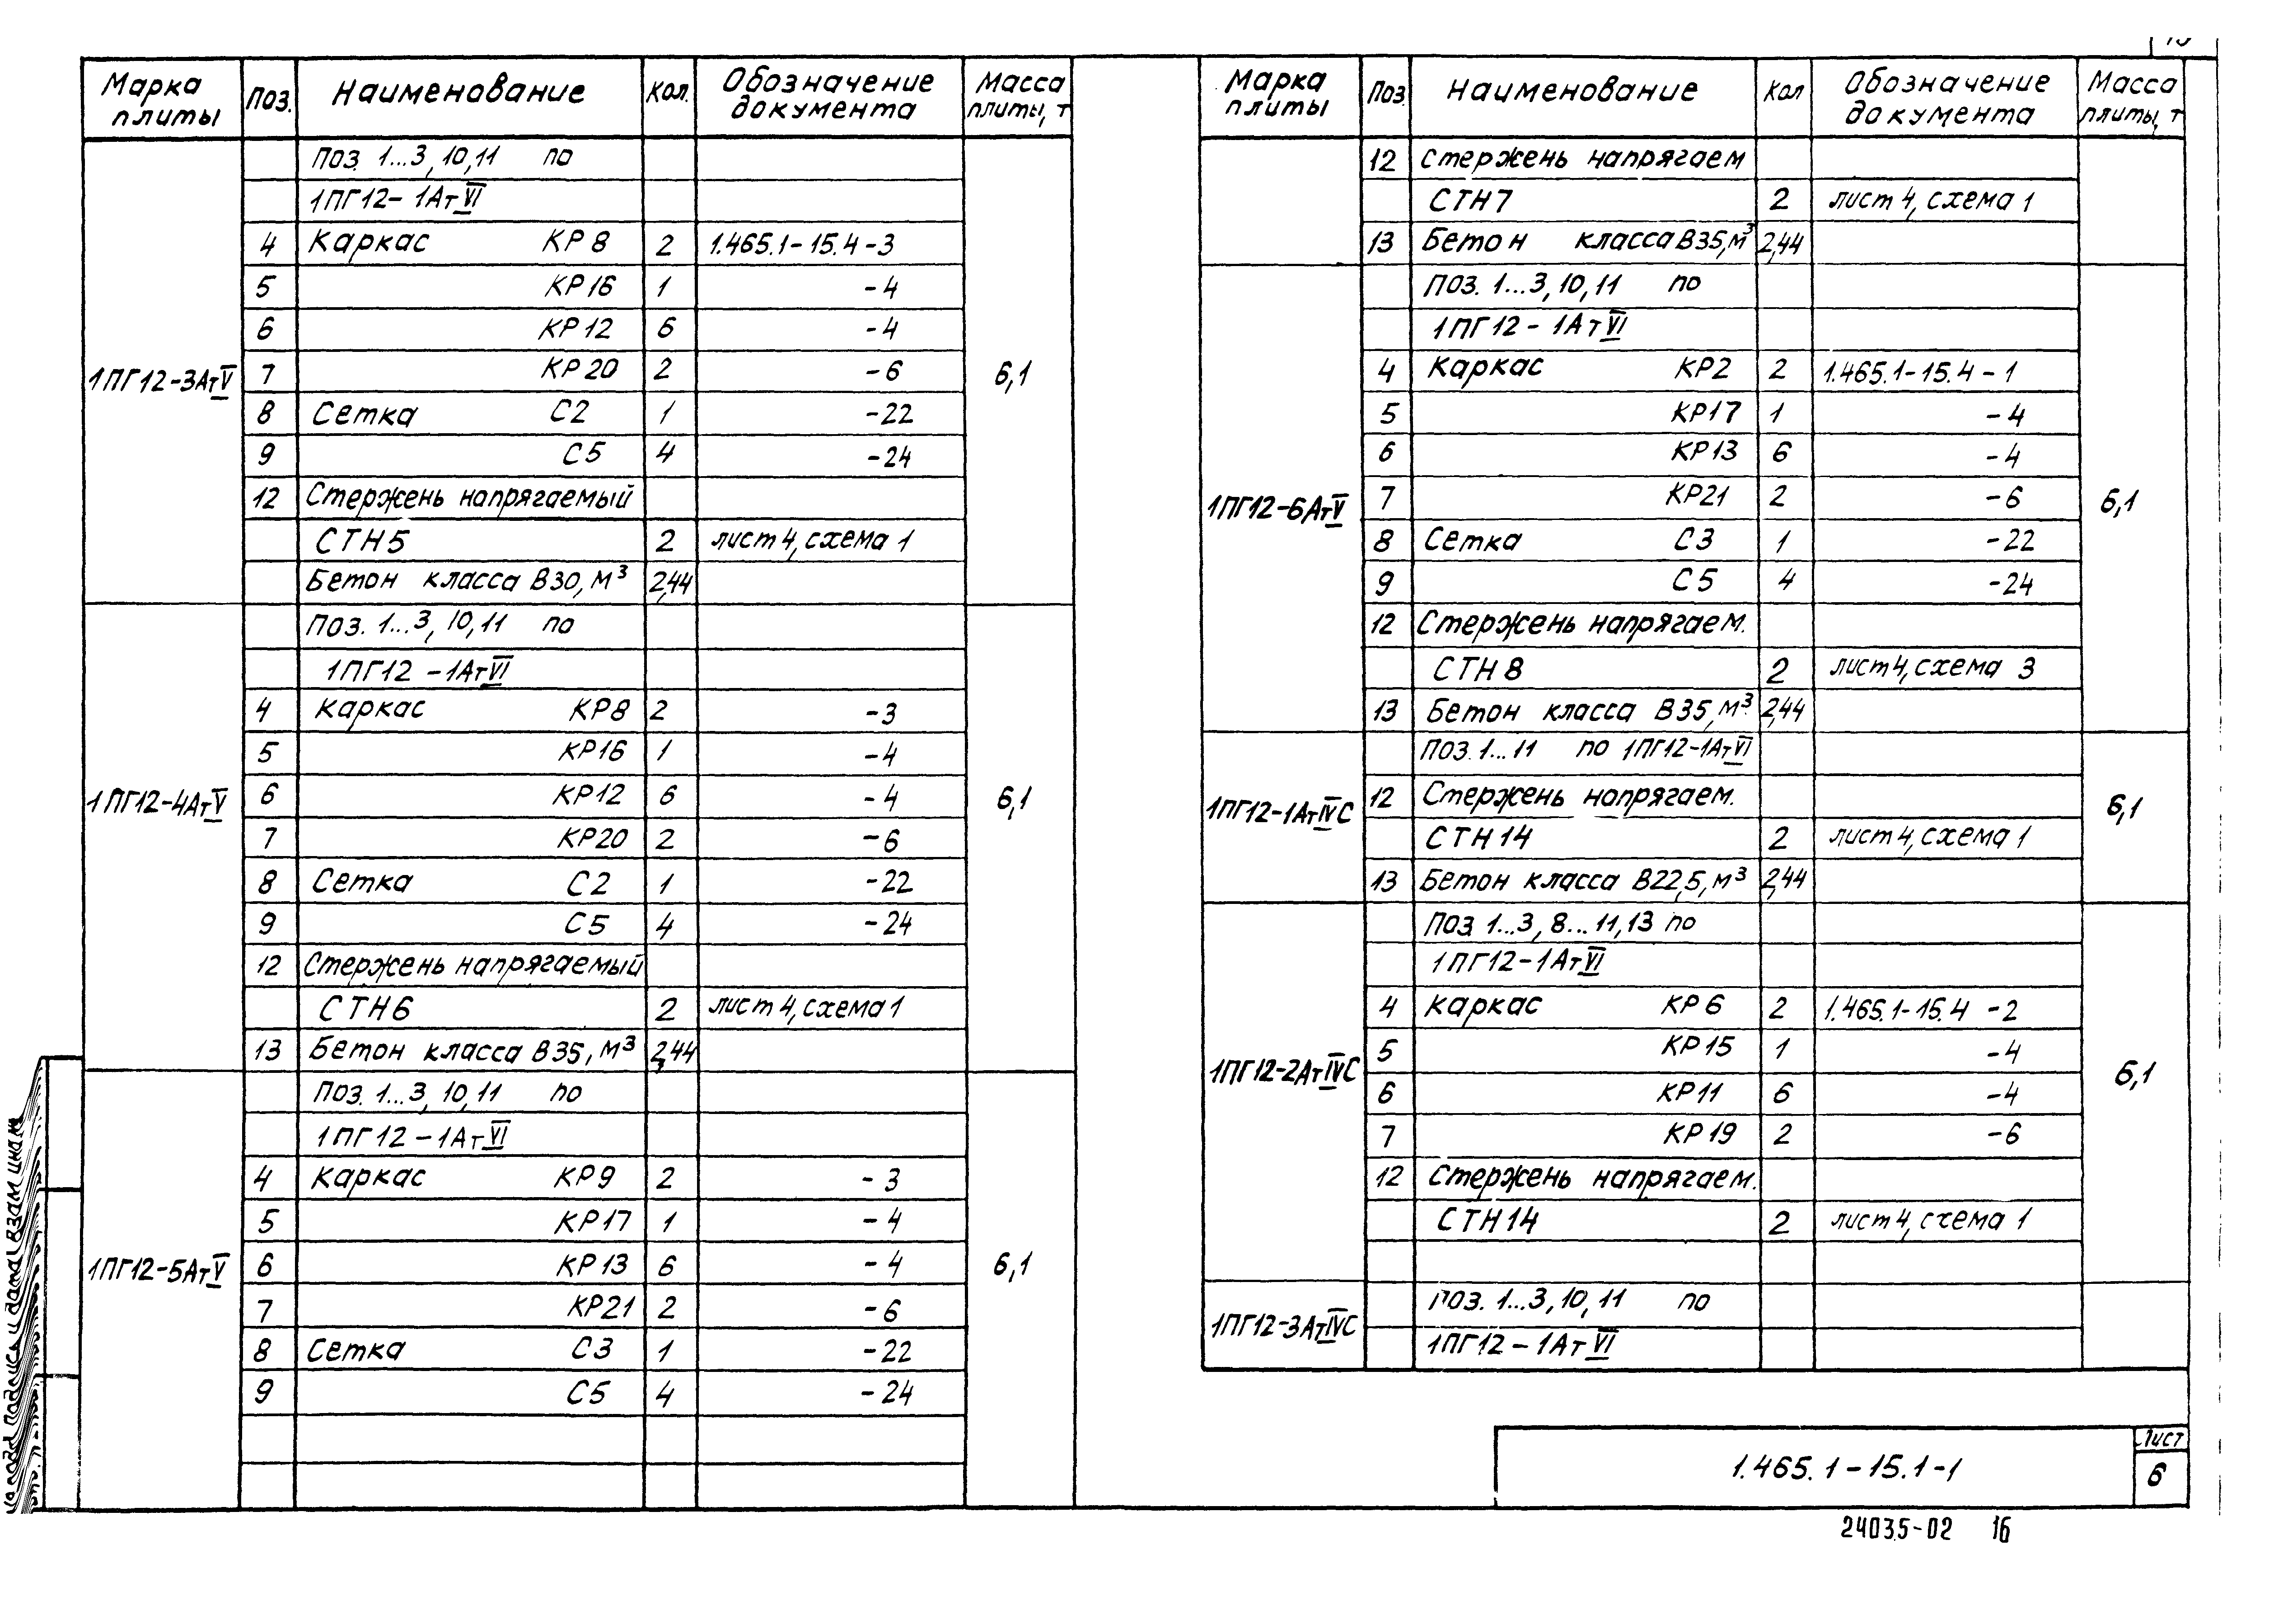 Марка плиты Поз. Наименование Кол. Обозначение документа Масса плиты, т
Поз. 1...3, 10, 11 по
1ПГ12-1АтVI
4 Каркас КР8 2 1.465.1-15.4-3
5 КР16 1 -4
6 КР12 6 -4
1ПГ12-3АтV 7 КР20 2 -6 6,1
8 Сетка С2 1 -22
9 С5 4 -24
12 Стержень напрягаемый
СТН5 2 лист 4, схема 1
Бетон класса В30, м³ 2,44
Поз. 1...3, 10, 11 по
1ПГ12-1АтVI
4 Каркас КР8 2 -3
5 КР16 1 -4
1ПГ12-4АтV 6 КР12 6 -4 6,1
7 КР20 2 -6
8 Сетка С2 1 -22
9 С5 4 -24
12 Стержень напрягаемый
СТН6 2 лист 4, схема 1
13 Бетон класса В35, м³ 2,44
Поз. 1...3, 10, 11 по
1ПГ12-1АтVI
4 Каркас КР9 2 -3
5 КР17 1 -4
1ПГ12-5АтV 6 КР13 6 -4 6,1
7 КР21 2 -6
8 Сетка С3 1 -22
9 С5 4 -24
Марка плиты Поз. Наименование Кол Обозначение документа Масса плиты, т
12 Стержень напрягаем
СТН7 2 лист 4, схема 1
13 Бетон класса В35, м³ 2,44
Поз. 1...3, 10, 11 по
1ПГ12-1АтVI
4 Каркас КР2 2 1.465.1-15.4-1
5 КР17 1 -4
6 КР13 6 -4
1ПГ12-6АтV 7 КР21 2 -6 6,1
8 Сетка С3 1 -22
9 С5 4 -24
12 Стержень напрягаем.
СТН8 2 лист 4, схема 3
13 Бетон класса В35, м³ 2,44
Поз. 1...11 по 1ПГ12-1АтVI
1ПГ12-1АтIVС 12 Стержень напрягаем. 6,1
СТН14 2 лист 4, схема 1
13 Бетон класса В22,5, м³ 2,44
Поз 1...3, 8...11, 13 по
1ПГ12-1АтVI
4 Каркас КР6 2 1.465.1-15.4 -2
5 КР15 1 -4
1ПГ12-2АтIVС 6 КР11 6 -4 6,1
7 КР19 2 -6
12 Стержень напрягаем.
СТН14 2 лист 4, схема 1
1ПГ12-3АтIVС Поз. 1...3, 10, 11 по
1ПГ12-1АтVI
1.465.1-15.1-1
Лист
6
24035-02 16